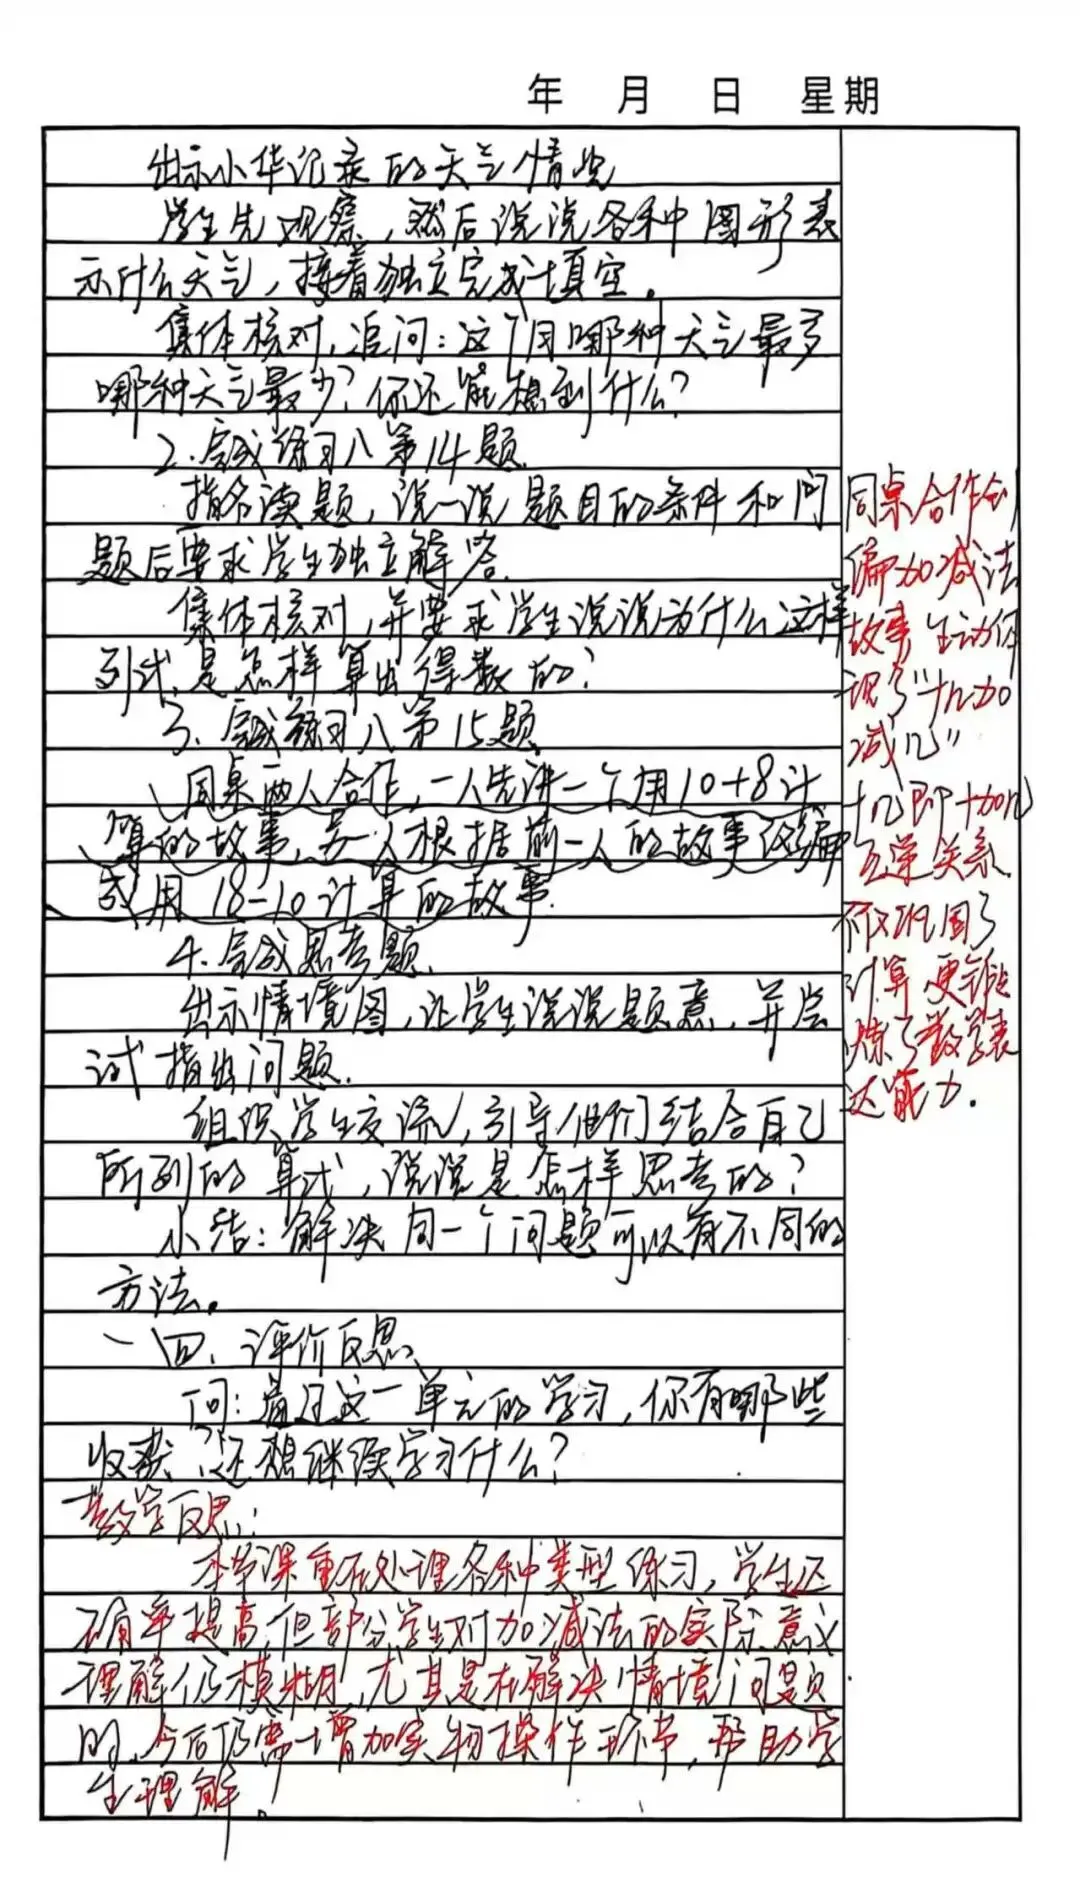 年 月 日 星期
出示小华记录的天气情况
学生先观察，然后说说各种图形表
示什么天气，接着独立完成填空。
集体核对，追问：这个月哪种天气最多
哪种天气最少？你还能想到什么？
2.完成练习八第14题.
指名读题，说一说题目的条件和问
题后要求学生独立解答.
集体核对，并要求学生说说为什么这样
列式，是怎样算出得数的？
3.完成练习八第15题.
同桌两人合作，一人先讲一个用10+8计
算的故事，另一人根据前一人的故事改编
成用18-10计算的故事.
4.完成思考题.
出示情境图，让学生说说题意，并尝
试指出问题.
组织学生交流，引导他们结合自己
所列的算式，说说是怎样思考的？
小结：解决同一个问题可以有不同的
方法。
四、评价反思
问：通过这一单元的学习，你有哪些
收获？还想继续学习什么？
教学反思：
本节课重在处理各种类型练习，学生
确率提高，但部分学生对加减法的实际意义
理解仍模糊，尤其是在解决情境问题
时，今后仍需增加实物操作环节，帮助学
生理解.
同桌合作创
编加减法
故事 生动体
现了"十几加
减几"
十几即十加几
互逆关系.
不仅巩固了
计算 更锻
炼了数学表
达能力.